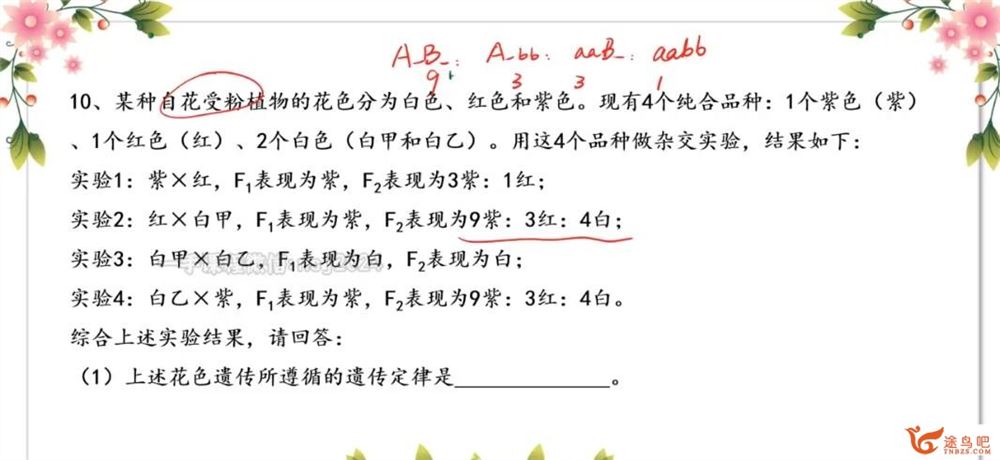 A_B_: A_bb: aaB_: aabb
9: 3 3 1
10、某种自花受粉植物的花色分为白色、红色和紫色。现有4个纯合品种：1个紫色（紫）
、1个红色（红）、2个白色（白甲和白乙）。用这4个品种做杂交实验，结果如下：
实验1：紫×红，F₁表现为紫，F₂表现为3紫：1红；
实验2：红×白甲，F₁表现为紫，F₂表现为9紫：3红：4白；
实验3：白甲×白乙，F₁表现为白，F₂表现为白；
实验4：白乙×紫，F₁表现为紫，F₂表现为9紫：3红：4白。
综合上述实验结果，请回答：
（1）上述花色遗传所遵循的遗传定律是____________。
途鸟吧
TNBZS.COM